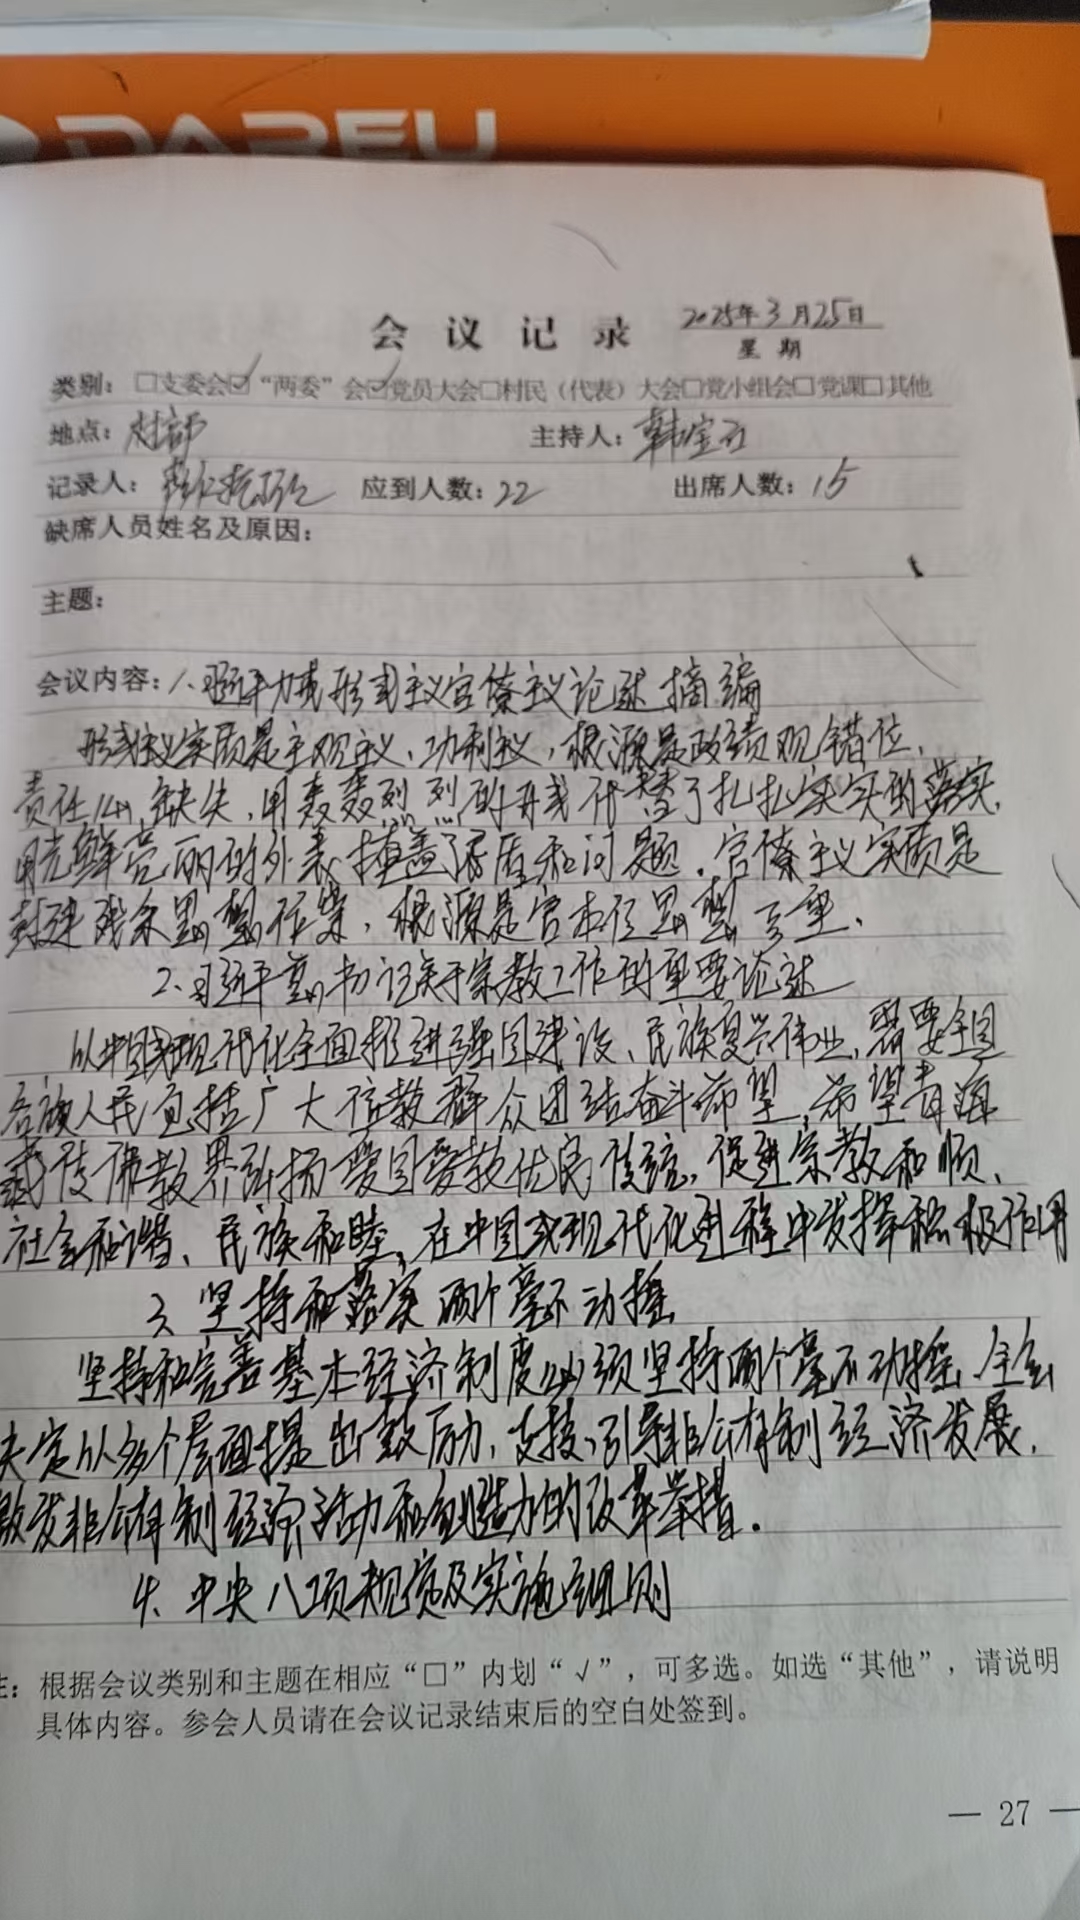 DAREU
会议记录 2025年3月25日
星期
类别：□支委会☑“两委”会☑党员大会□村民（代表）大会□党小组会□党课□其他
地点：村部 主持人：韩宝
记录人： 应到人数：22 出席人数：15
缺席人员姓名及原因：
主题：
会议内容：1、习近平力戒形式主义官僚主义论述摘编
形式主义实质是主观主义、功利主义，根源是政绩观错位，
责任心缺失，用轰轰烈烈的形式代替了扎扎实实的落实，
用光鲜亮丽的外表掩盖了矛盾和问题。官僚主义实质是
封建残余思想作祟，根源是官本位思想严重。
2、习近平总书记关于宗教工作的重要论述
以中国式现代化全面推进强国建设、民族复兴伟业，需要全国
各族人民包括广大信教群众团结奋斗希望，希望青海
藏传佛教界弘扬爱国爱教优良传统，促进宗教和顺、
社会和谐、民族和睦，在中国式现代化进程中发挥积极作用
3、坚持和落实两个毫不动摇
坚持和完善基本经济制度必须坚持两个毫不动摇、全会
决定从多个层面提出鼓励、支持、引导非公有制经济发展，
激发非公有制经济活力和创造力的改革举措。
4、中央八项规定及实施细则
注：根据会议类别和主题在相应“□”内划“√”，可多选。如选“其他”，请说明
具体内容。参会人员请在会议记录结束后的空白处签到。
— 27 —